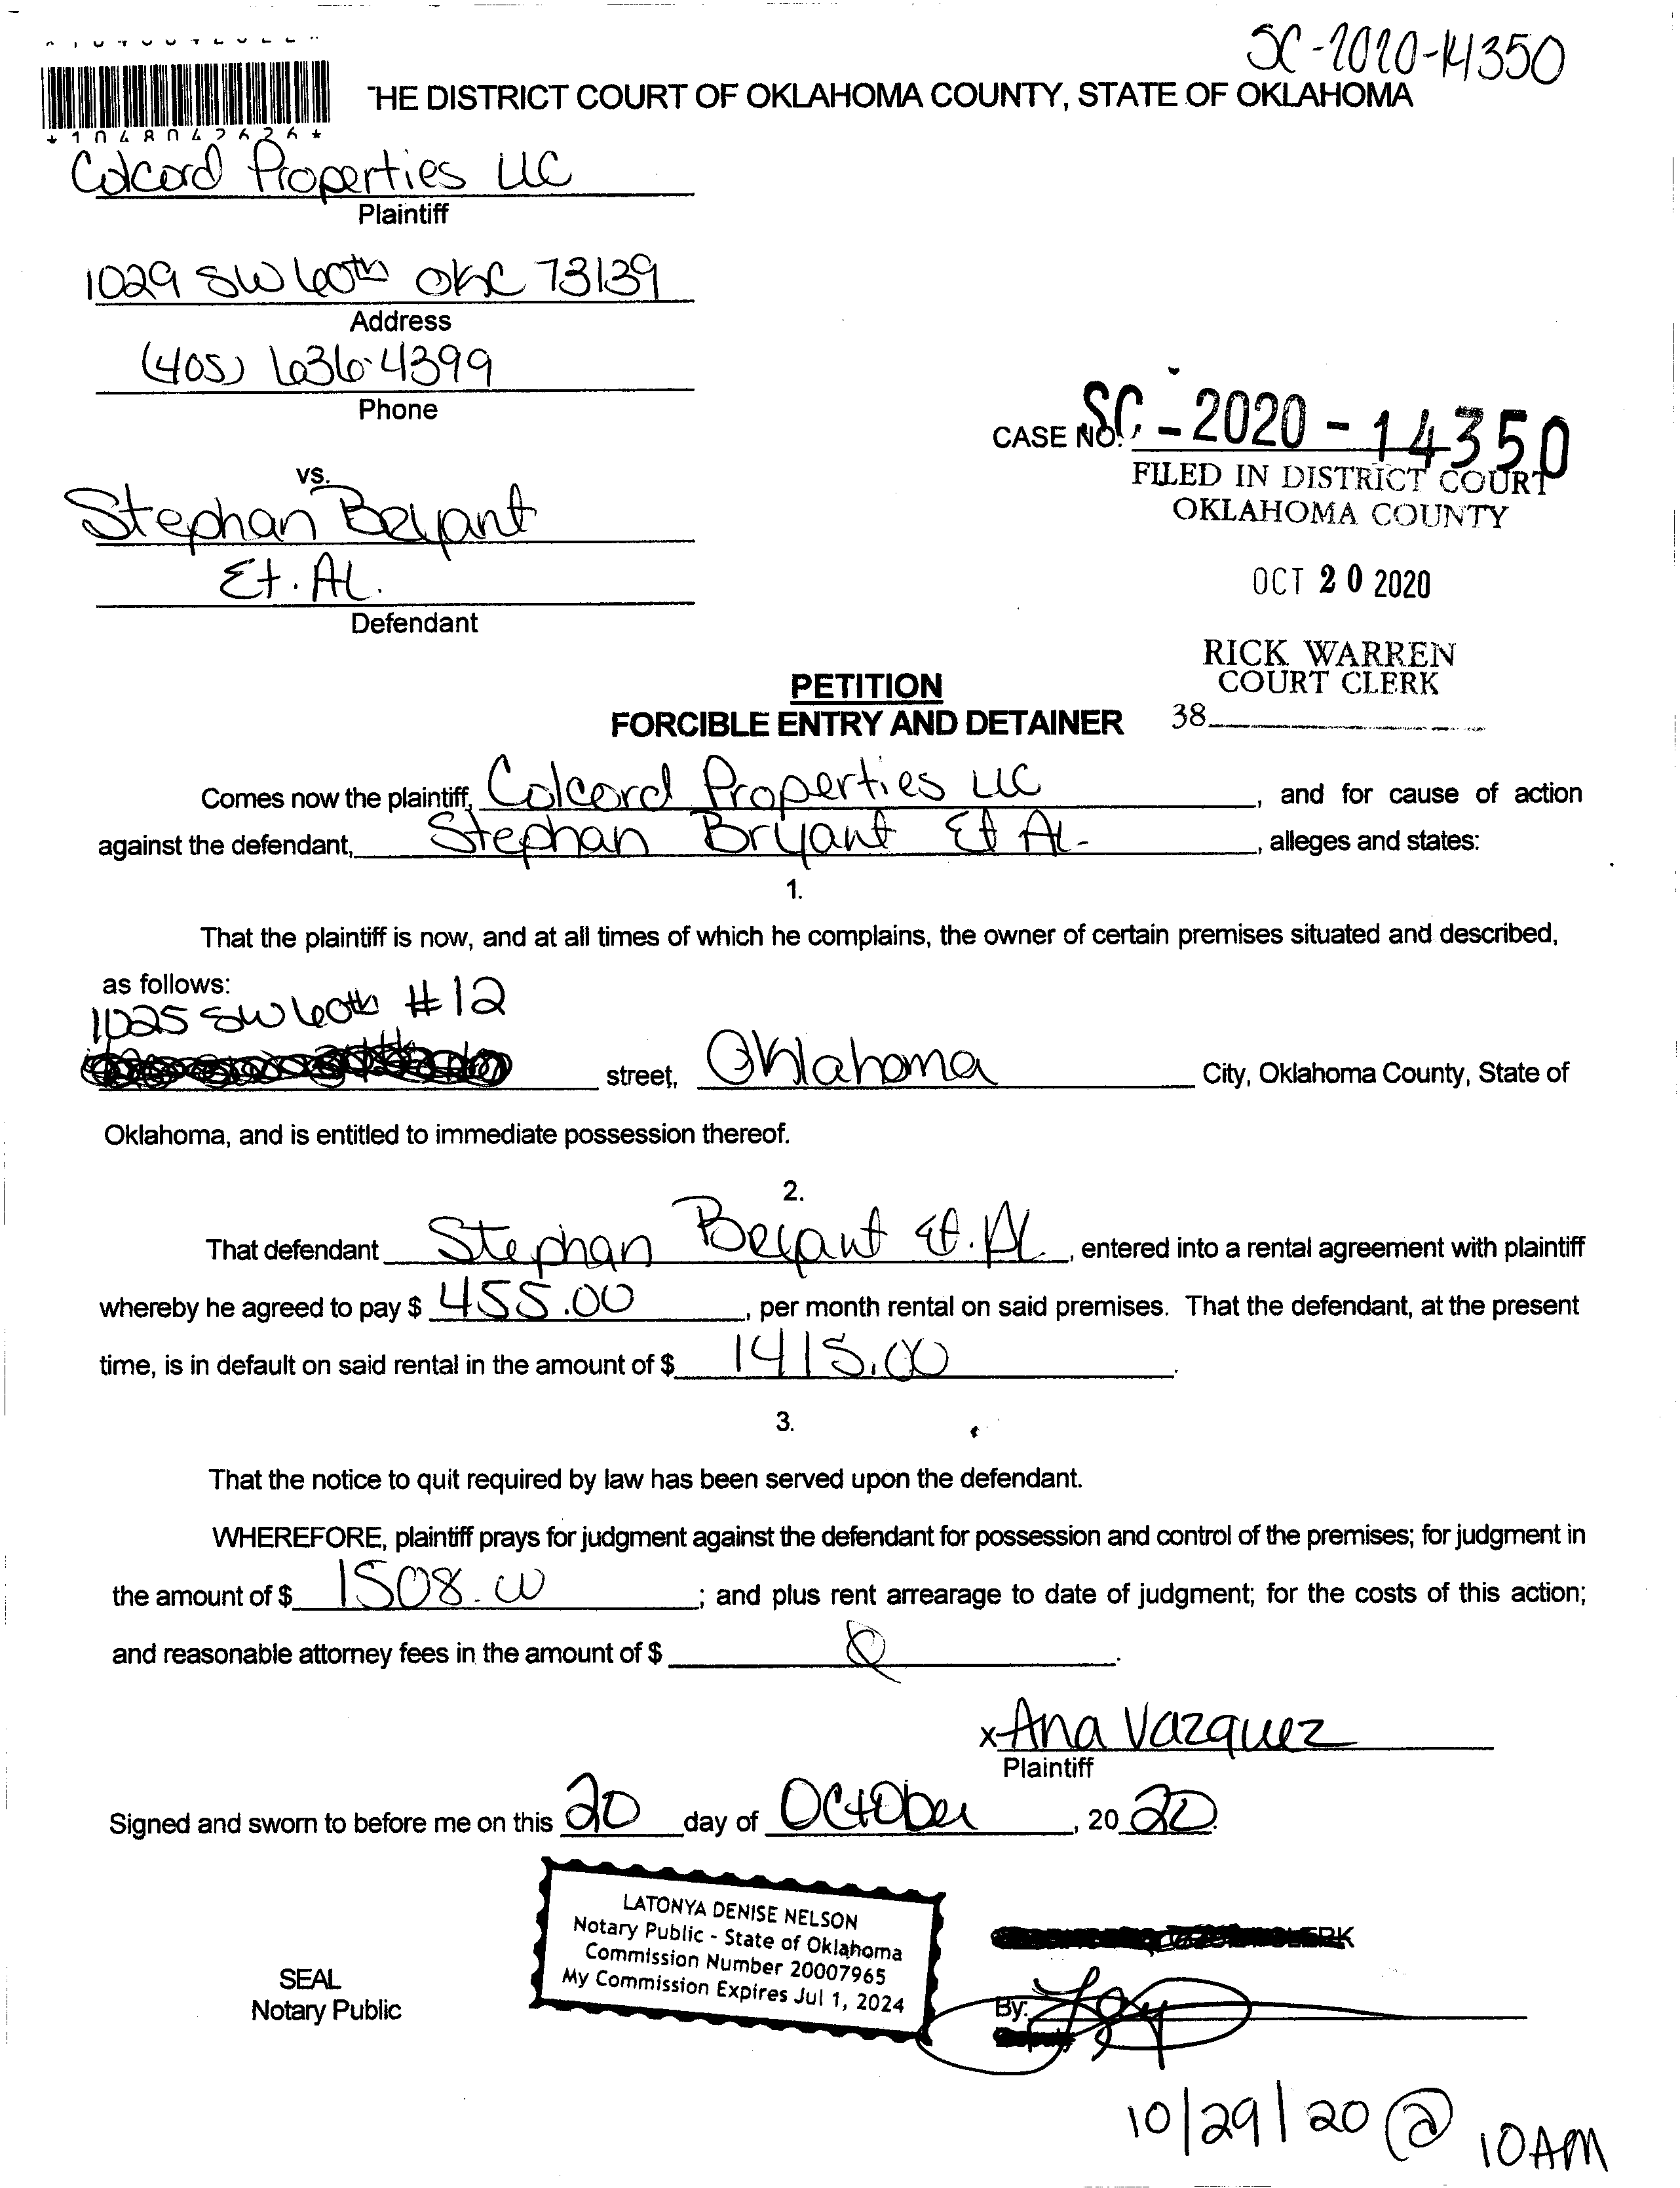 SC-2020-14350
*1048042626*
THE DISTRICT COURT OF OKLAHOMA COUNTY, STATE OF OKLAHOMA
Colcord Properties LLC
Plaintiff
1029 SW 60th OKC 73139
Address
(405) 636-4399
Phone
CASE NO. SC - 2020 - 14350
FILED IN DISTRICT COURT
OKLAHOMA COUNTY
OCT 20 2020
RICK WARREN
COURT CLERK
38
vs.
Stephan Bryant
Et. AL.
Defendant
PETITION
FORCIBLE ENTRY AND DETAINER
Comes now the plaintiff, Colcord Properties LLC, and for cause of action
against the defendant, Stephan Bryant Et AL, alleges and states:
1.
That the plaintiff is now, and at all times of which he complains, the owner of certain premises situated and described,
as follows:
1025 SW 60th #12
street, Oklahoma City, Oklahoma County, State of
Oklahoma, and is entitled to immediate possession thereof.
2.
That defendant Stephan Bryant Et. AL, entered into a rental agreement with plaintiff
whereby he agreed to pay $ 455.00, per month rental on said premises. That the defendant, at the present
time, is in default on said rental in the amount of $ 1415.00.
3.
That the notice to quit required by law has been served upon the defendant.
WHEREFORE, plaintiff prays for judgment against the defendant for possession and control of the premises; for judgment in
the amount of $ 1508.00; and plus rent arrearage to date of judgment; for the costs of this action;
and reasonable attorney fees in the amount of $
x Ana Vazquez
Plaintiff
Signed and sworn to before me on this 20 day of October, 20 20.
LATONYA DENISE NELSON
Notary Public - State of Oklahoma
Commission Number 20007965
My Commission Expires Jul 1, 2024
SEAL
Notary Public
By:
10/29/20 @ 10AM